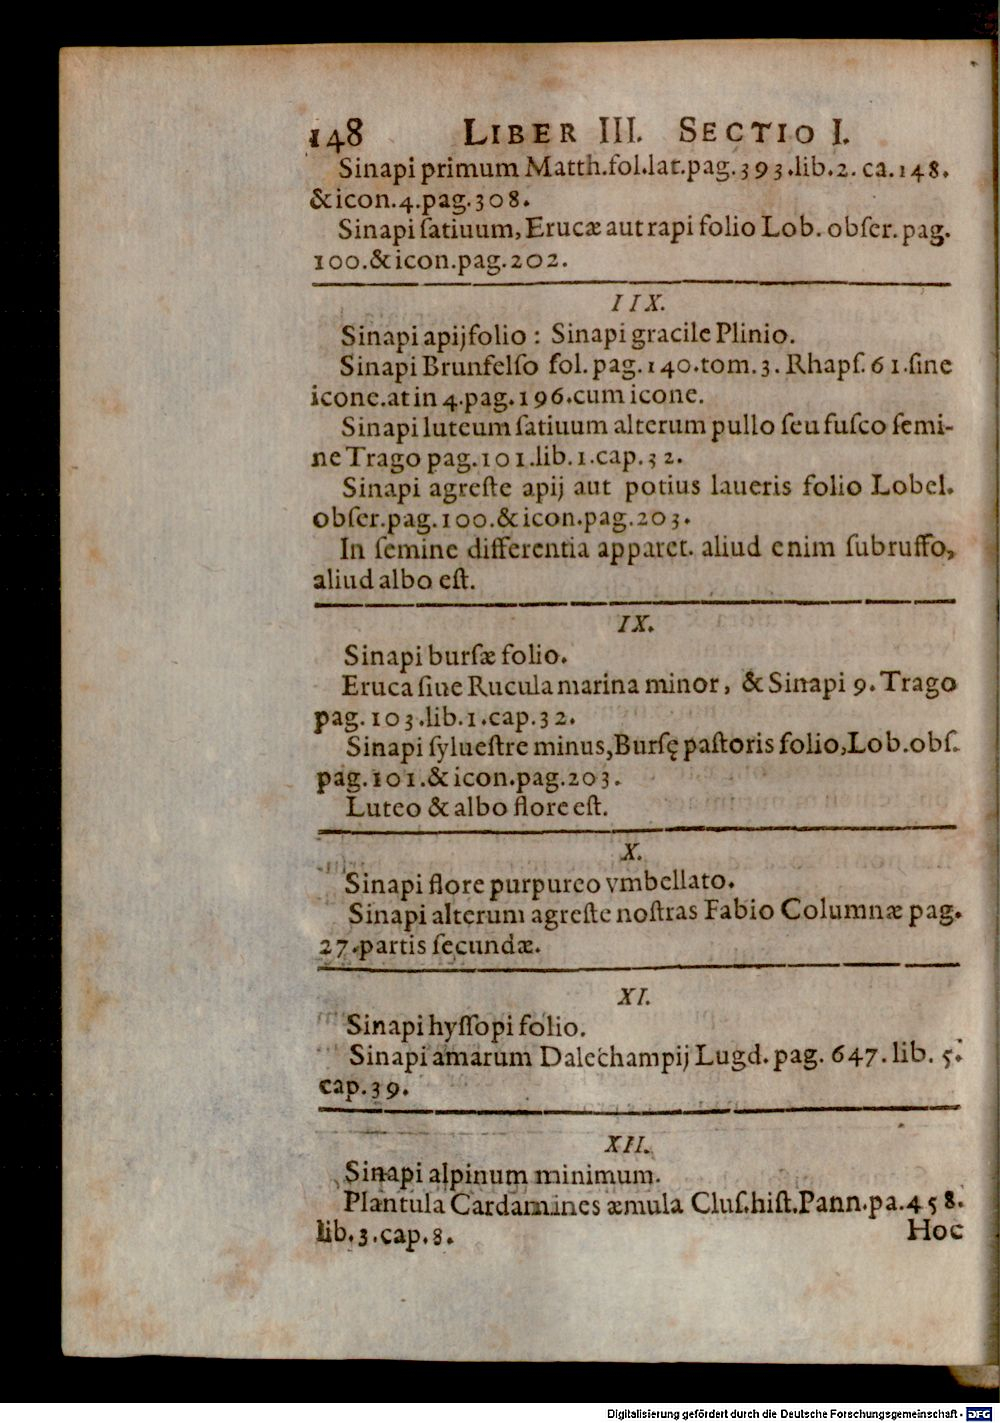 148 LIBER III. SECTIO I.
Sinapi primum Matth.fol.lat.pag.393.lib.2. ca.148.
& icon.4.pag.308.
Sinapi ſatiuum, Erucæ aut rapi folio Lob. obſer. pag.
100.& icon.pag.202.
IIX.
Sinapi apij folio : Sinapi gracile Plinio.
Sinapi Brunfelſo fol. pag. 140.tom.3. Rhapſ.61.ſine
icone.at in 4.pag.196.cum icone.
Sinapi luteum ſatiuum alterum pullo ſeu fuſco ſemi-
ne Trago pag.101.lib.1.cap.32.
Sinapi agreſte apij aut potius laueris folio Lobel.
obſer.pag.100.& icon.pag.203.
In ſemine differentia apparet. aliud enim ſubruffo,
aliud albo eſt.
IX.
Sinapi burſæ folio.
Eruca ſiue Rucula marina minor, & Sinapi 9. Trago
pag.103.lib.1.cap.32.
Sinapi ſylueſtre minus, Burſę paſtoris folio, Lob.obſ.
pag.101.& icon.pag.203.
Luteo & albo flore eſt.
X.
Sinapi flore purpureo vmbellato.
Sinapi alterum agreſte noſtras Fabio Columnæ pag.
27.partis ſecundæ.
XI.
Sinapi hyſſopi folio.
Sinapi amarum Dalechampij Lugd. pag. 647. lib. 5.
cap.39.
XII.
Sinapi alpinum minimum.
Plantula Cardamines æmula Cluſ.hiſt.Pann.pa.458.
lib.3.cap.8. Hoc
Digitalisierung gefördert durch die Deutsche Forschungsgemeinschaft - DFG